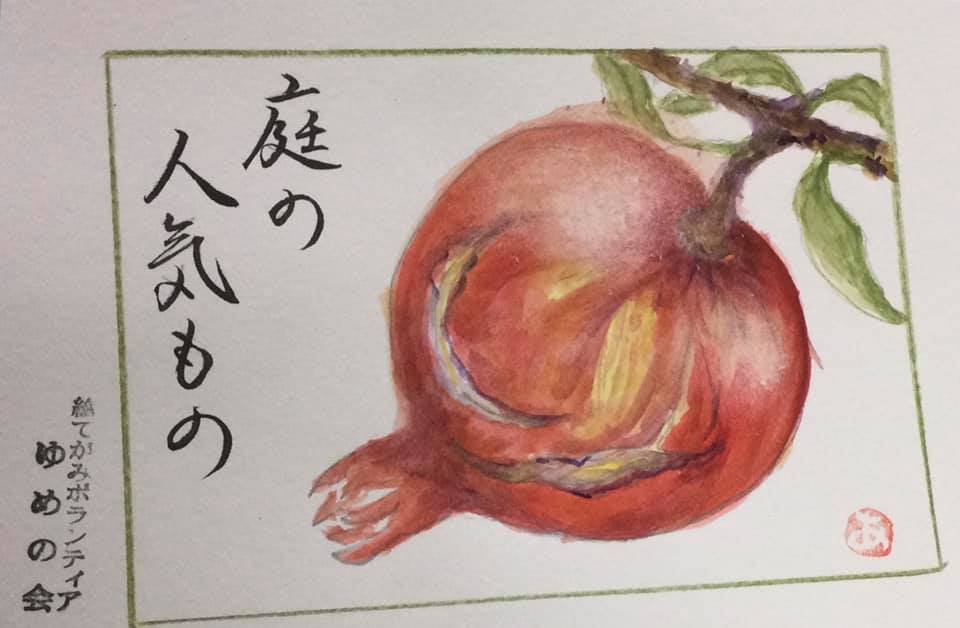 庭の
人気もの
絵てがみボランティア
ゆめの会